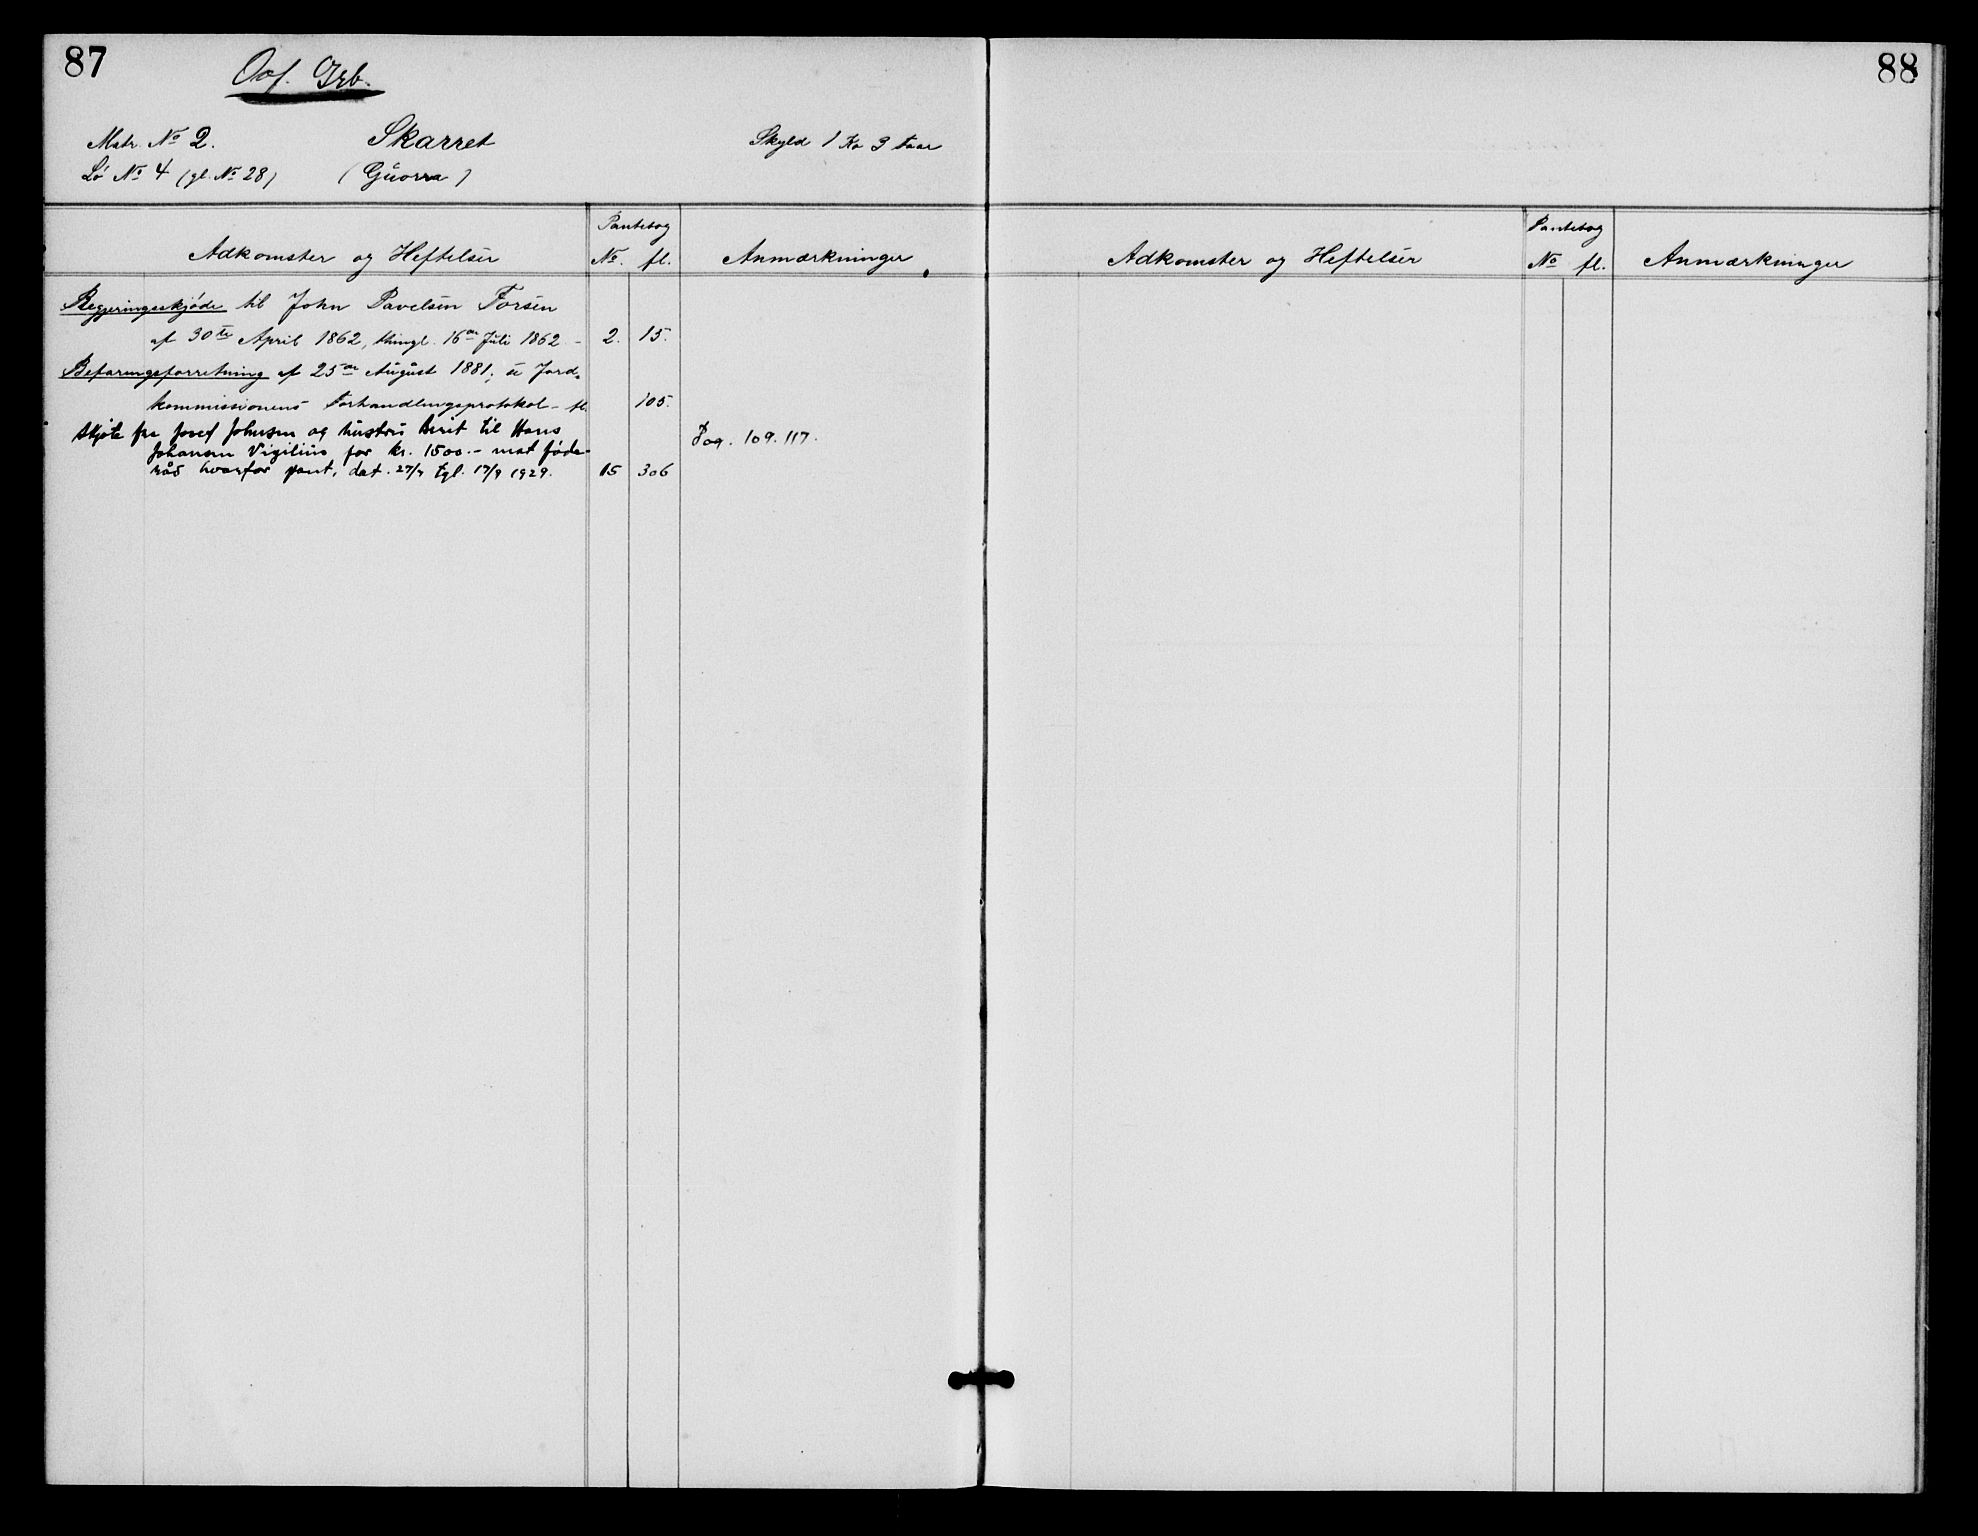 87
Ovf. Grb.
Matr. No 2. Skarret Skyld 1 Kr 3 Daler
Lø No 4 (gl. No 28) (Guorra)
Adkomster og Heftelser Pantebog No. fl. Anmærkninger
Regjeringsskjøde til John Pavelsen Forsen
af 30te April 1862, thingl. 16de Juli 1862 - 2. 15.
Befaringsforretning af 25de August 1881, se Jord-
kommissionens Forhandlingsprotokol - fl. 105.
Skjøte fra Josef Johnsen og hustru Berit til Hans
Johansen Vigilius for kr. 1500.- mot føde- 109. 117.
råd hvorfor pant, dat. 27/7 tgl. 17/9 1929. 15 306
88
Adkomster og Heftelser Pantebog No fl. Anmærkninger